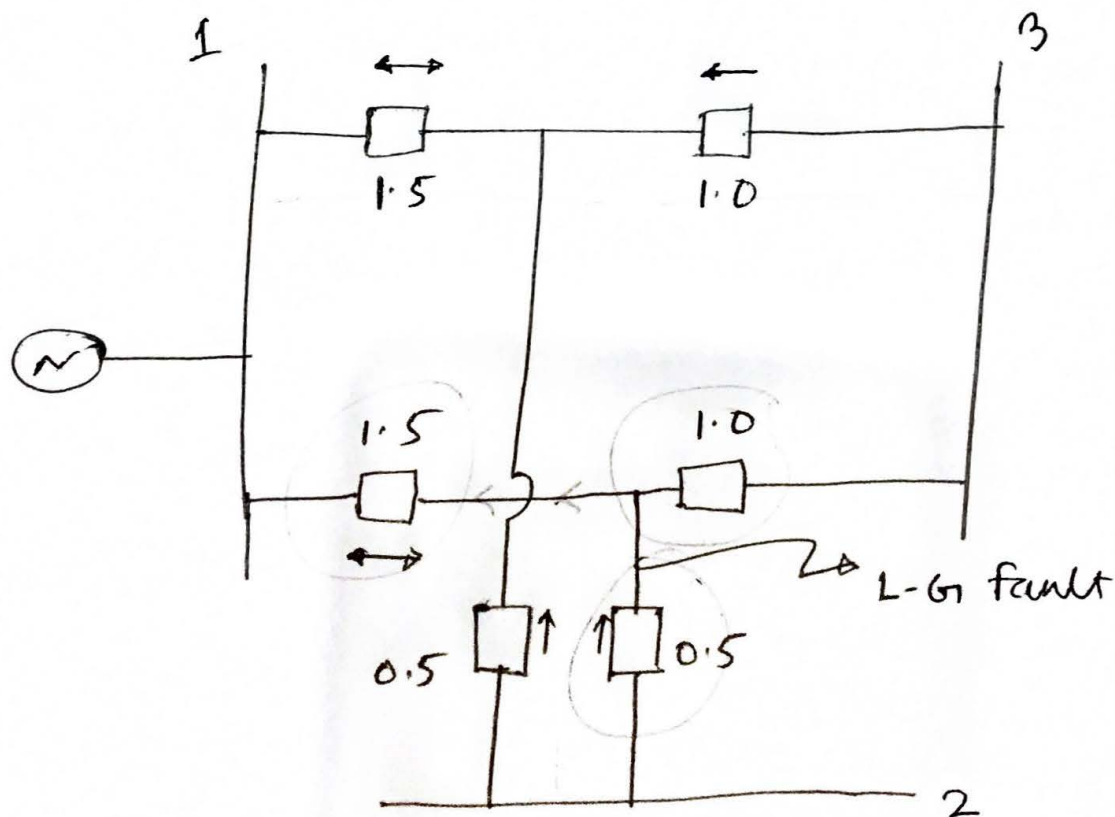 1
3
1.5
1.0
1.5
1.0
L-G fault
0.5
0.5
2